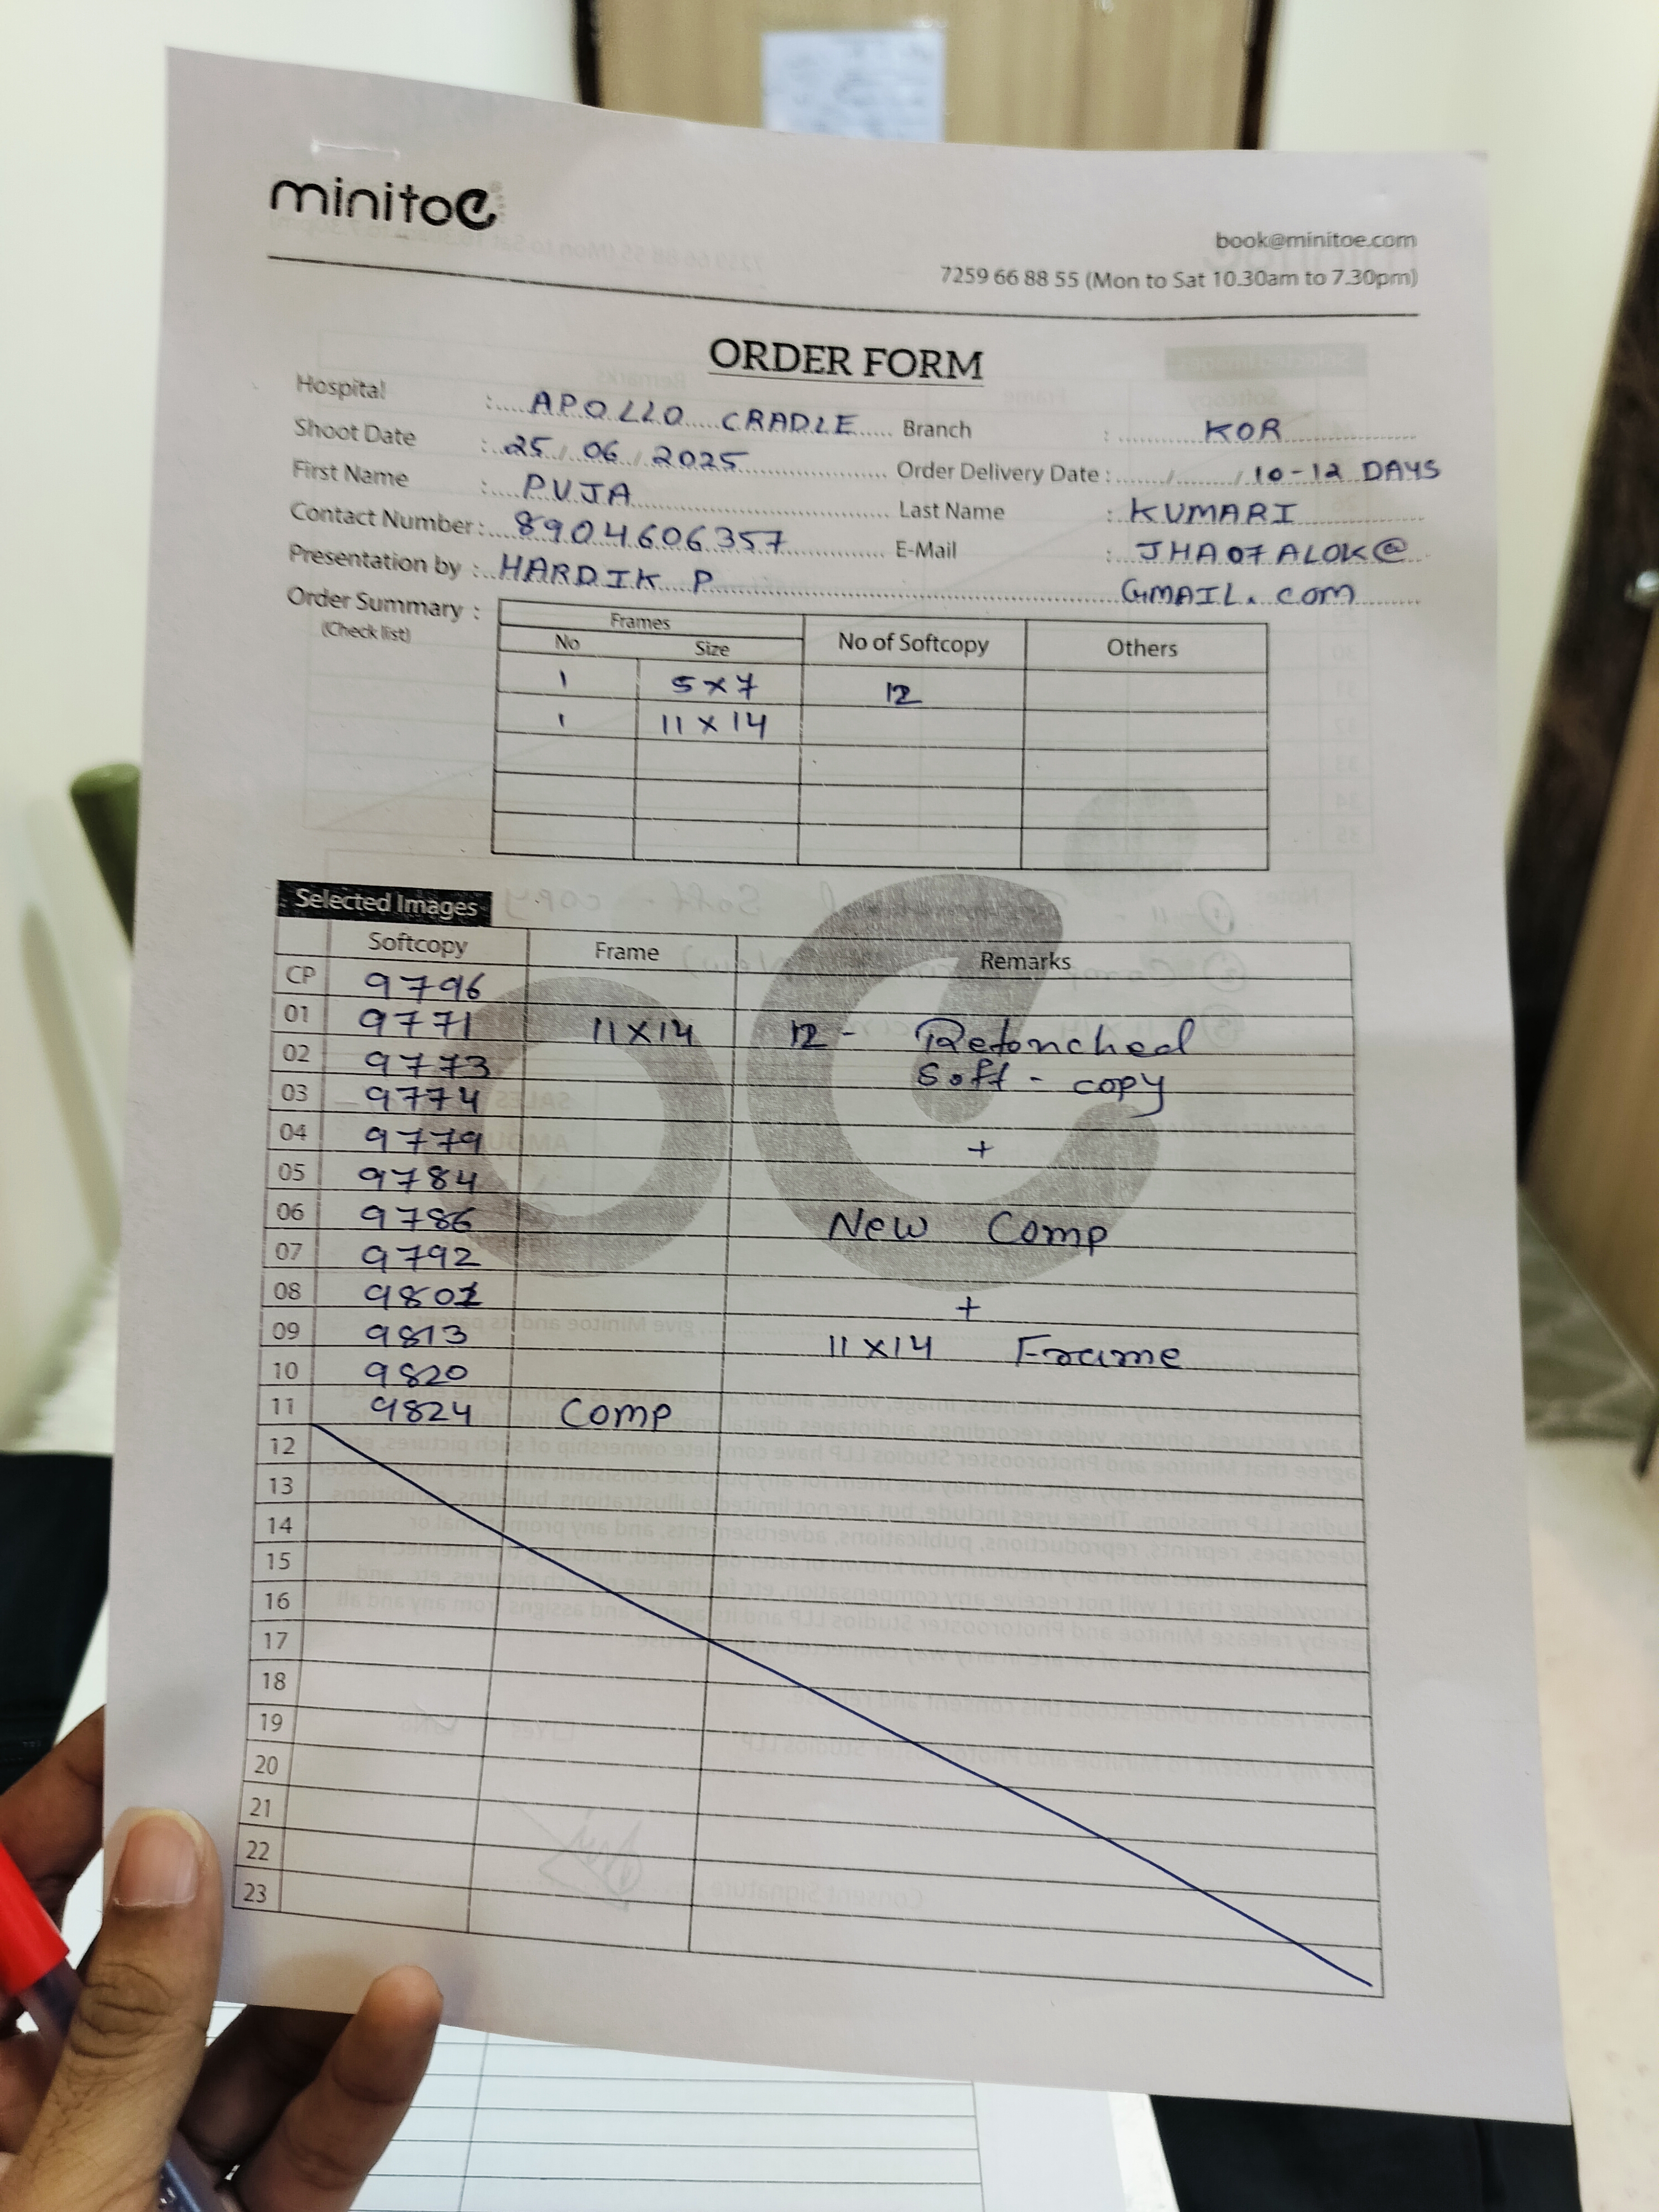 minitoe
book@minitoe.com
7259 66 88 55 (Mon to Sat 10.30am to 7.30pm)
ORDER FORM
Hospital : APOLLO CRADLE Branch : KOR
Shoot Date : 25 / 06 / 2025 Order Delivery Date : / / 10-12 DAYS
First Name : PUJA Last Name : KUMARI
Contact Number : 8904606357 E-Mail : JHA07ALOK@
Presentation by : HARDIK P GMAIL.COM
Order Summary :
(Check list)
Frames
No Size No of Softcopy Others
1 5x7 12
1 11x14
Selected Images
Softcopy Frame Remarks
CP 9796
01 9771 11x14 12 - Retouched
02 9773 Soft - copy
03 9774
04 9779 +
05 9784
06 9786 New Comp
07 9792
08 9801 +
09 9813 11x14 Frame
10 9820
11 9824 Comp
12
13
14
15
16
17
18
19
20
21
22
23